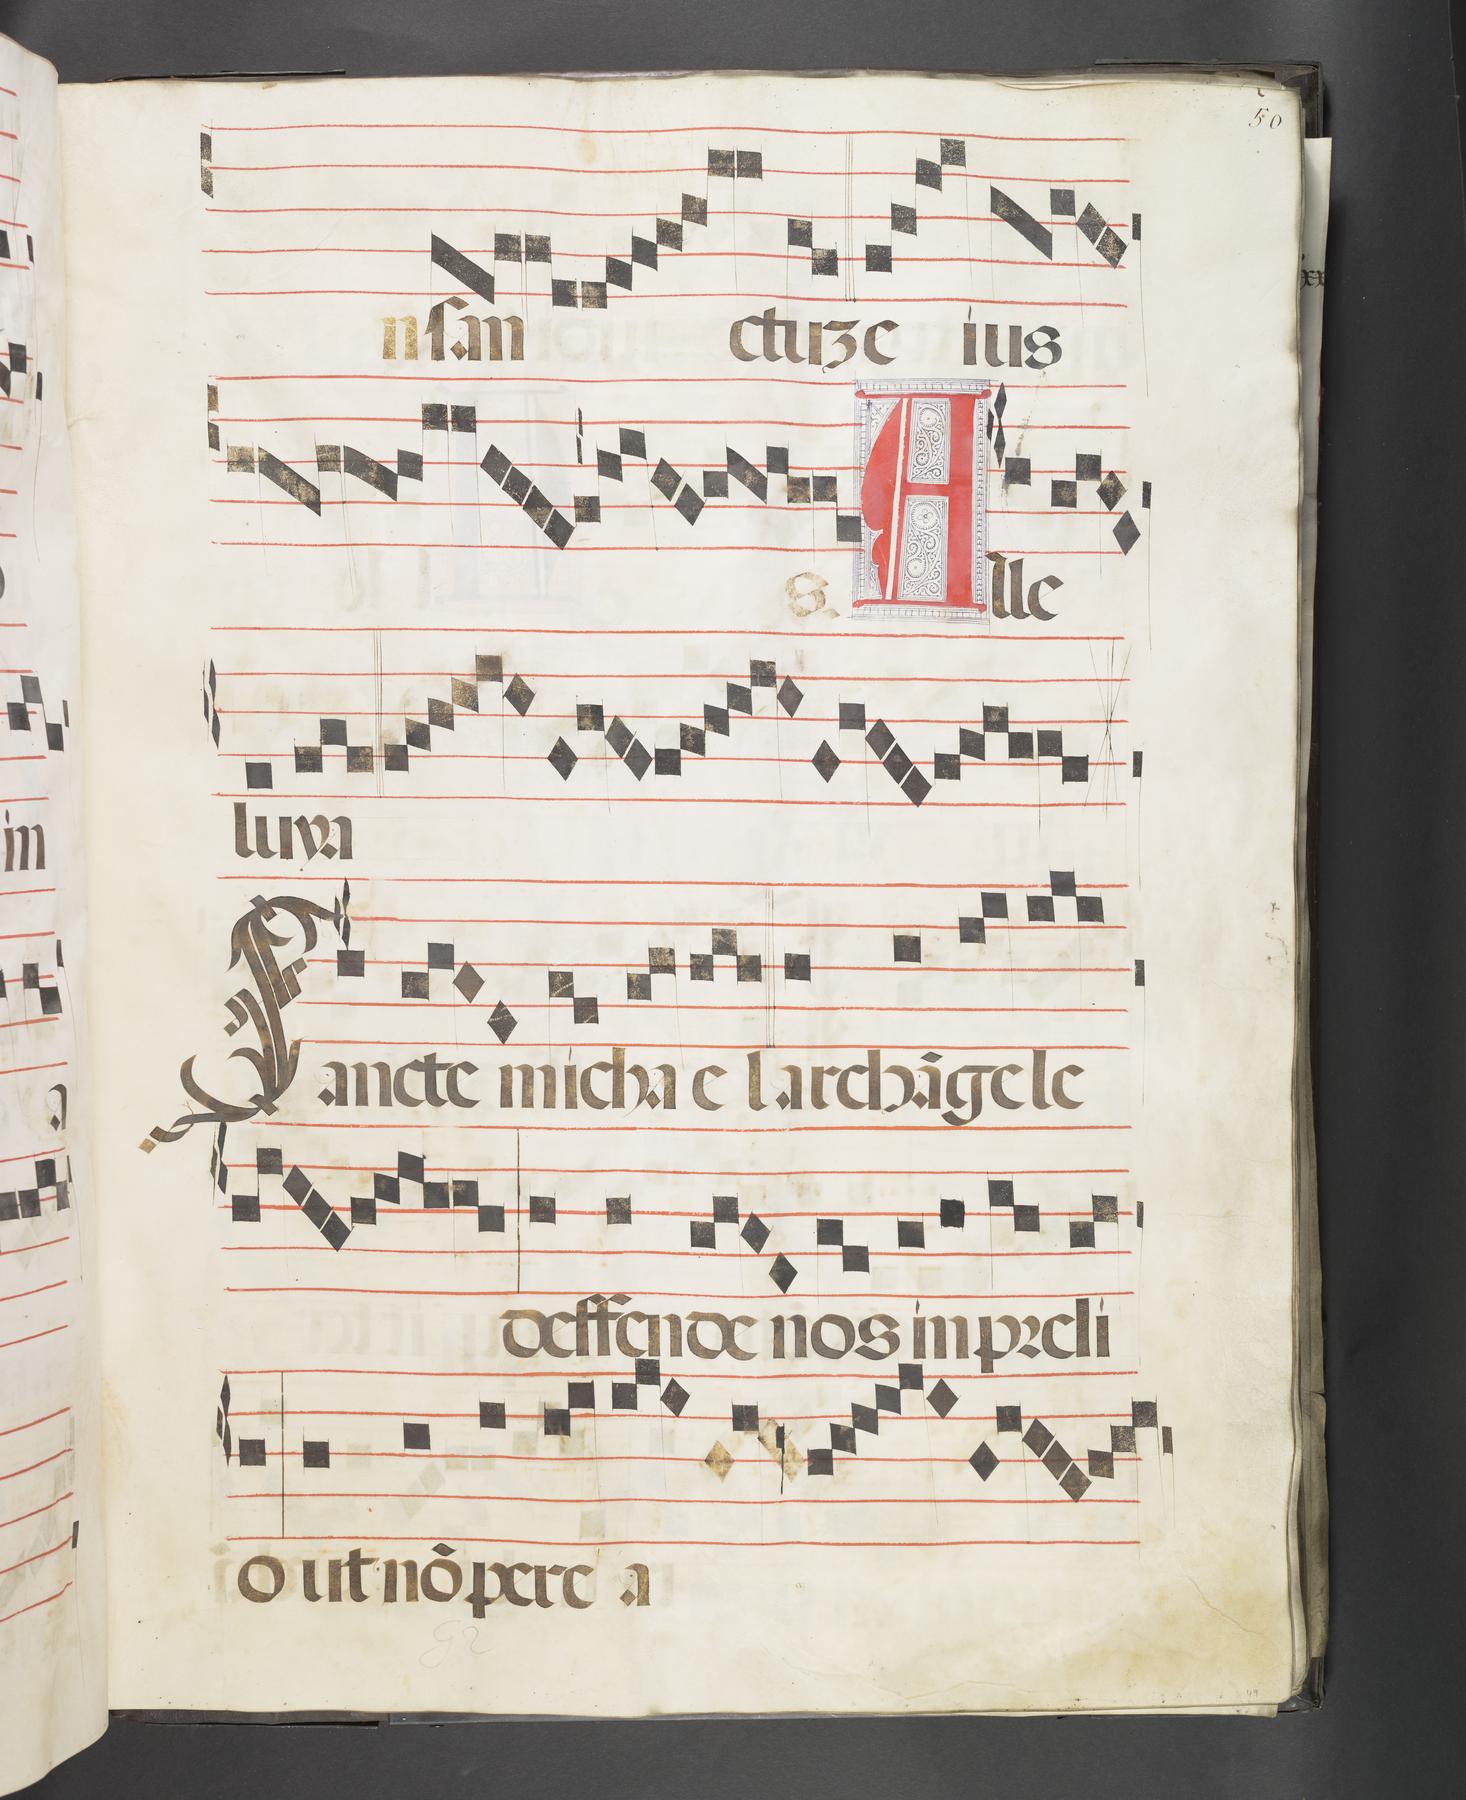 50
n san ctuz e ius
s. Alle
luya
Sancte micha e l archãgele
deffende nos in preli
o ut nõ pere a
92
49
in
a